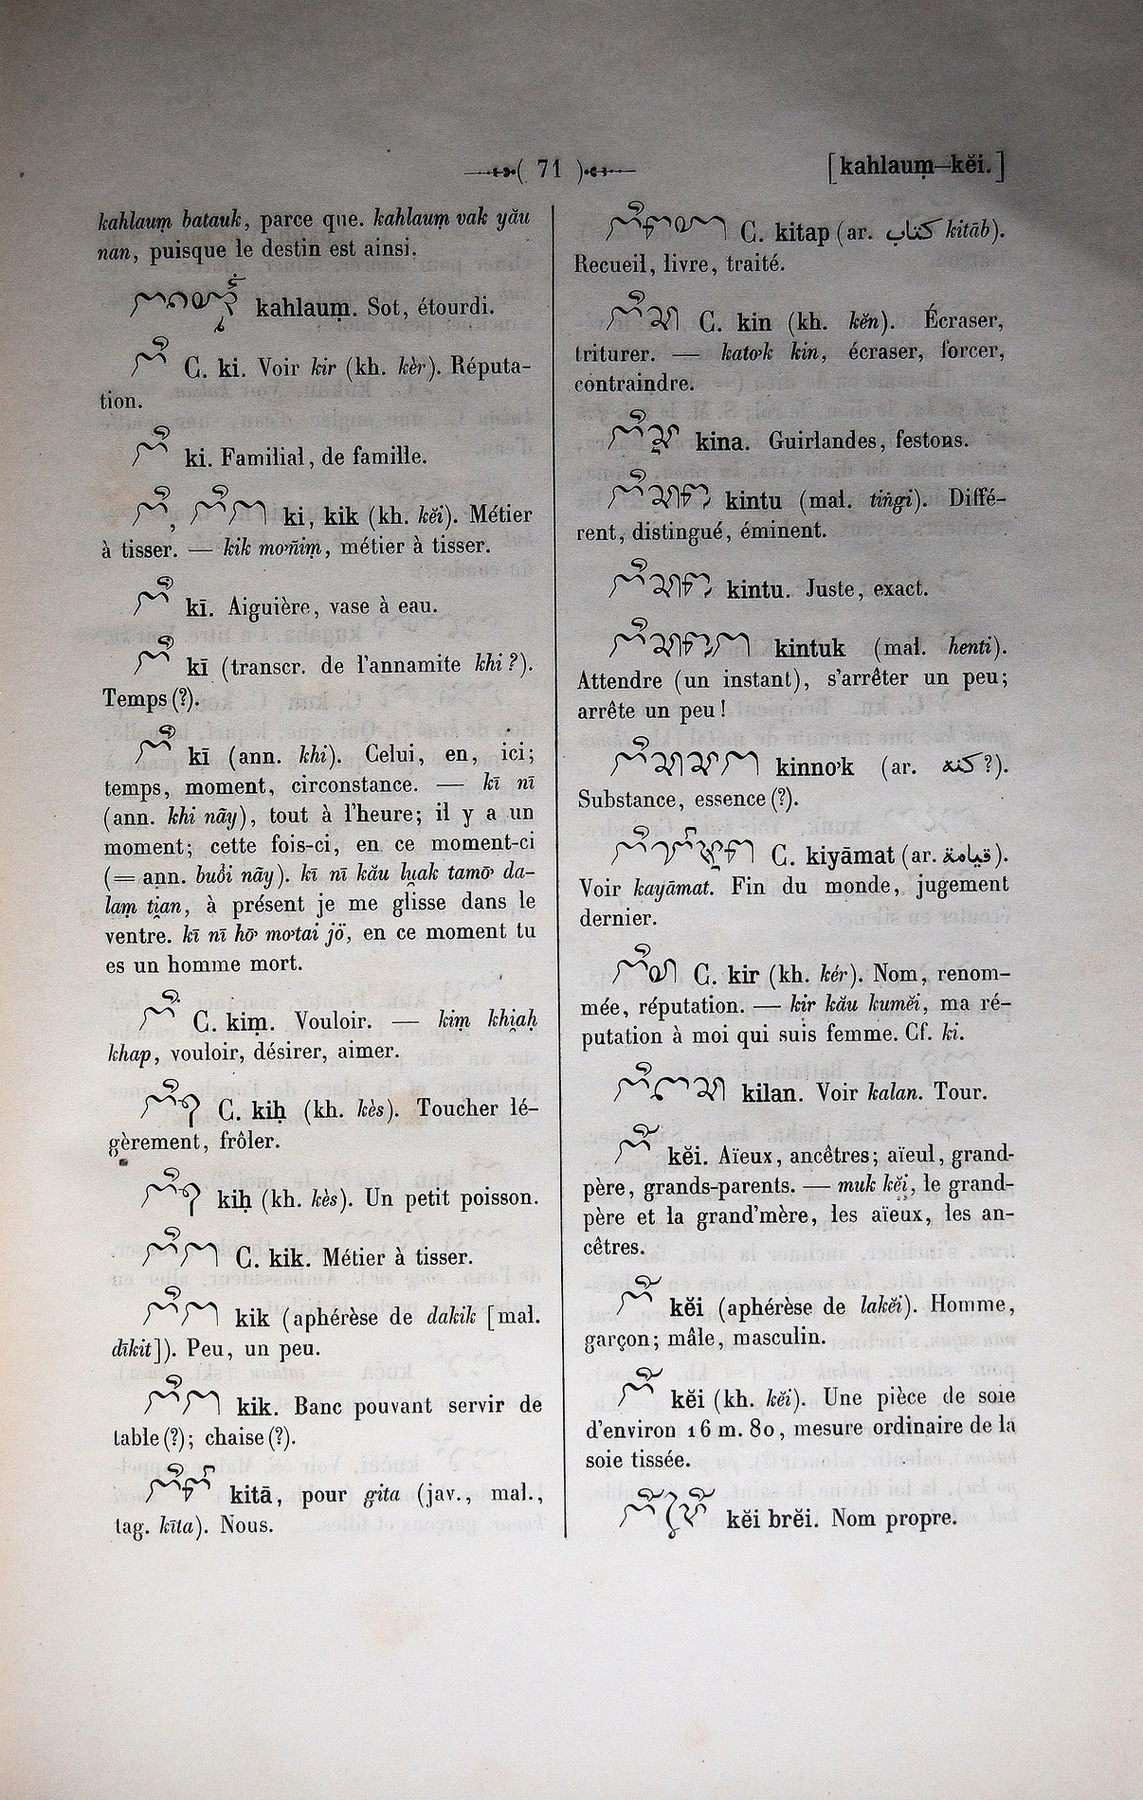 ( 71 )
[kahlauṃ—kĕi.]
kahlauṃ batauk, parce que. kahlauṃ vak yău
nan, puisque le destin est ainsi.
kahlauṃ. Sot, étourdi.
C. ki. Voir kir (kh. kèr). Réputa-
tion.
ki. Familial, de famille.
ki, kik (kh. kĕi). Métier
à tisser. — kik mơñiṃ, métier à tisser.
kī. Aiguière, vase à eau.
kī (transcr. de l'annamite khi?).
Temps (?).
kī (ann. khi). Celui, en, ici;
temps, moment, circonstance. — kī nī
(ann. khi nãy), tout à l'heure; il y a un
moment; cette fois-ci, en ce moment-ci
(= ann. buổi nãy). kī nī kău lu̯ak tamơ̄ da-
laṃ tian, à présent je me glisse dans le
ventre. kī nī hơ̄ mơtai jö̆, en ce moment tu
es un homme mort.
C. kiṃ. Vouloir. — kiṃ khi̯aḥ
khap, vouloir, désirer, aimer.
C. kiḥ (kh. kès). Toucher lé-
gèrement, frôler.
kiḥ (kh. kès). Un petit poisson.
C. kik. Métier à tisser.
kik (aphérèse de dakik [mal.
dīkit]). Peu, un peu.
kik. Banc pouvant servir de
table (?); chaise (?).
kitā, pour gita (jav., mal.,
tag. kīta). Nous.
C. kitap (ar. كتاب kitāb).
Recueil, livre, traité.
C. kin (kh. kĕn). Écraser,
triturer. — katơk kin, écraser, forcer,
contraindre.
kina. Guirlandes, festons.
kintu (mal. tiṅgi). Diffé-
rent, distingué, éminent.
kintu. Juste, exact.
kintuk (mal. henti).
Attendre (un instant), s'arrêter un peu;
arrête un peu!
kinnơk (ar. كنه?).
Substance, essence (?).
C. kiyāmat (ar. قيامة).
Voir kayāmat. Fin du monde, jugement
dernier.
C. kir (kh. kér). Nom, renom-
mée, réputation. — kir kău kumĕi, ma ré-
putation à moi qui suis femme. Cf. ki.
kilan. Voir kalan. Tour.
kĕi. Aïeux, ancêtres; aïeul, grand-
père, grands-parents. — muk kĕi, le grand-
père et la grand'mère, les aïeux, les an-
cêtres.
kĕi (aphérèse de lakĕi). Homme,
garçon; mâle, masculin.
kĕi (kh. kĕi). Une pièce de soie
d'environ 16 m. 80, mesure ordinaire de la
soie tissée.
kĕi brĕi. Nom propre.